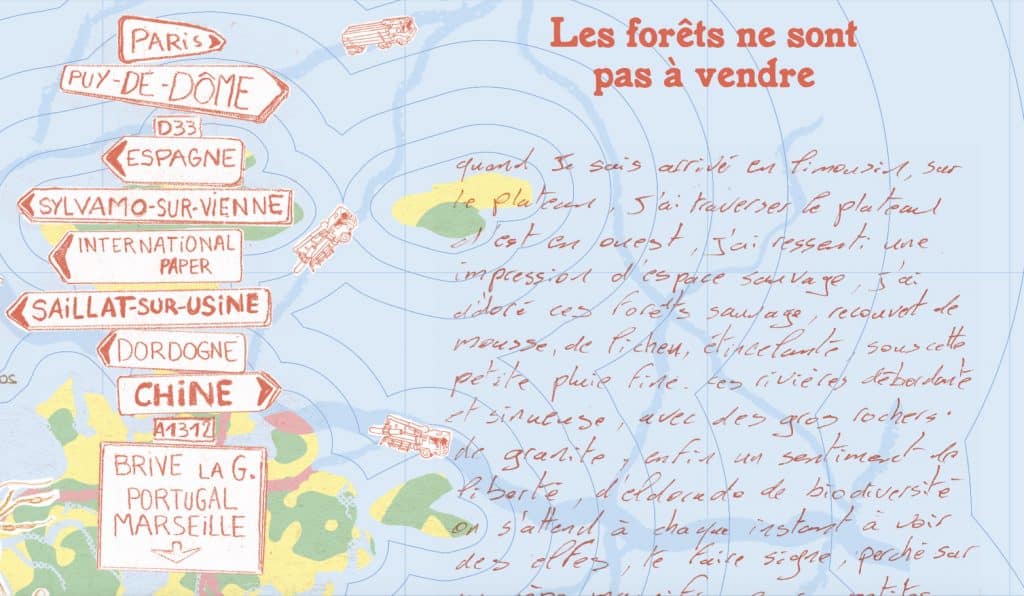 PARIS
PUY-DE-DÔME
D33
ESPAGNE
SYLVAMO-SUR-VIENNE
INTERNATIONAL
PAPER
SAILLAT-SUR-USINE
DORDOGNE
CHINE
A1312
BRIVE LA G.
PORTUGAL
MARSEILLE
Les forêts ne sont
pas à vendre
quand Je suis arrivé en limousin, sur
le plateau, j'ai traverser le plateau
d'est en ouest, j'ai ressenti une
impression d'espace sauvage, j'ai
adoré ces forêts sauvage, recouvet de
mousse, de lichen, étincelante, sous cette
petite pluie fine. Les rivières débordante
et sinueuse, avec des gros rochers
de granite, enfin un sentiment de
liberté, d'eldorado de biodiversité
on s'attend à chaque instant à voir
des elfes, te faire signe, perché sur